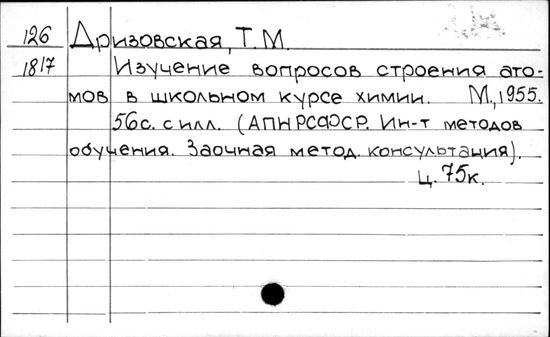 126 Дризовская, Т.М.
1817 Изучение вопросов строения ато-
мов в школьном курсе химии. М., 1955.
56с. с илл. (АПН РСФСР. Ин-т методов
обучения. Заочная метод. консультация).
Ц. 75к.